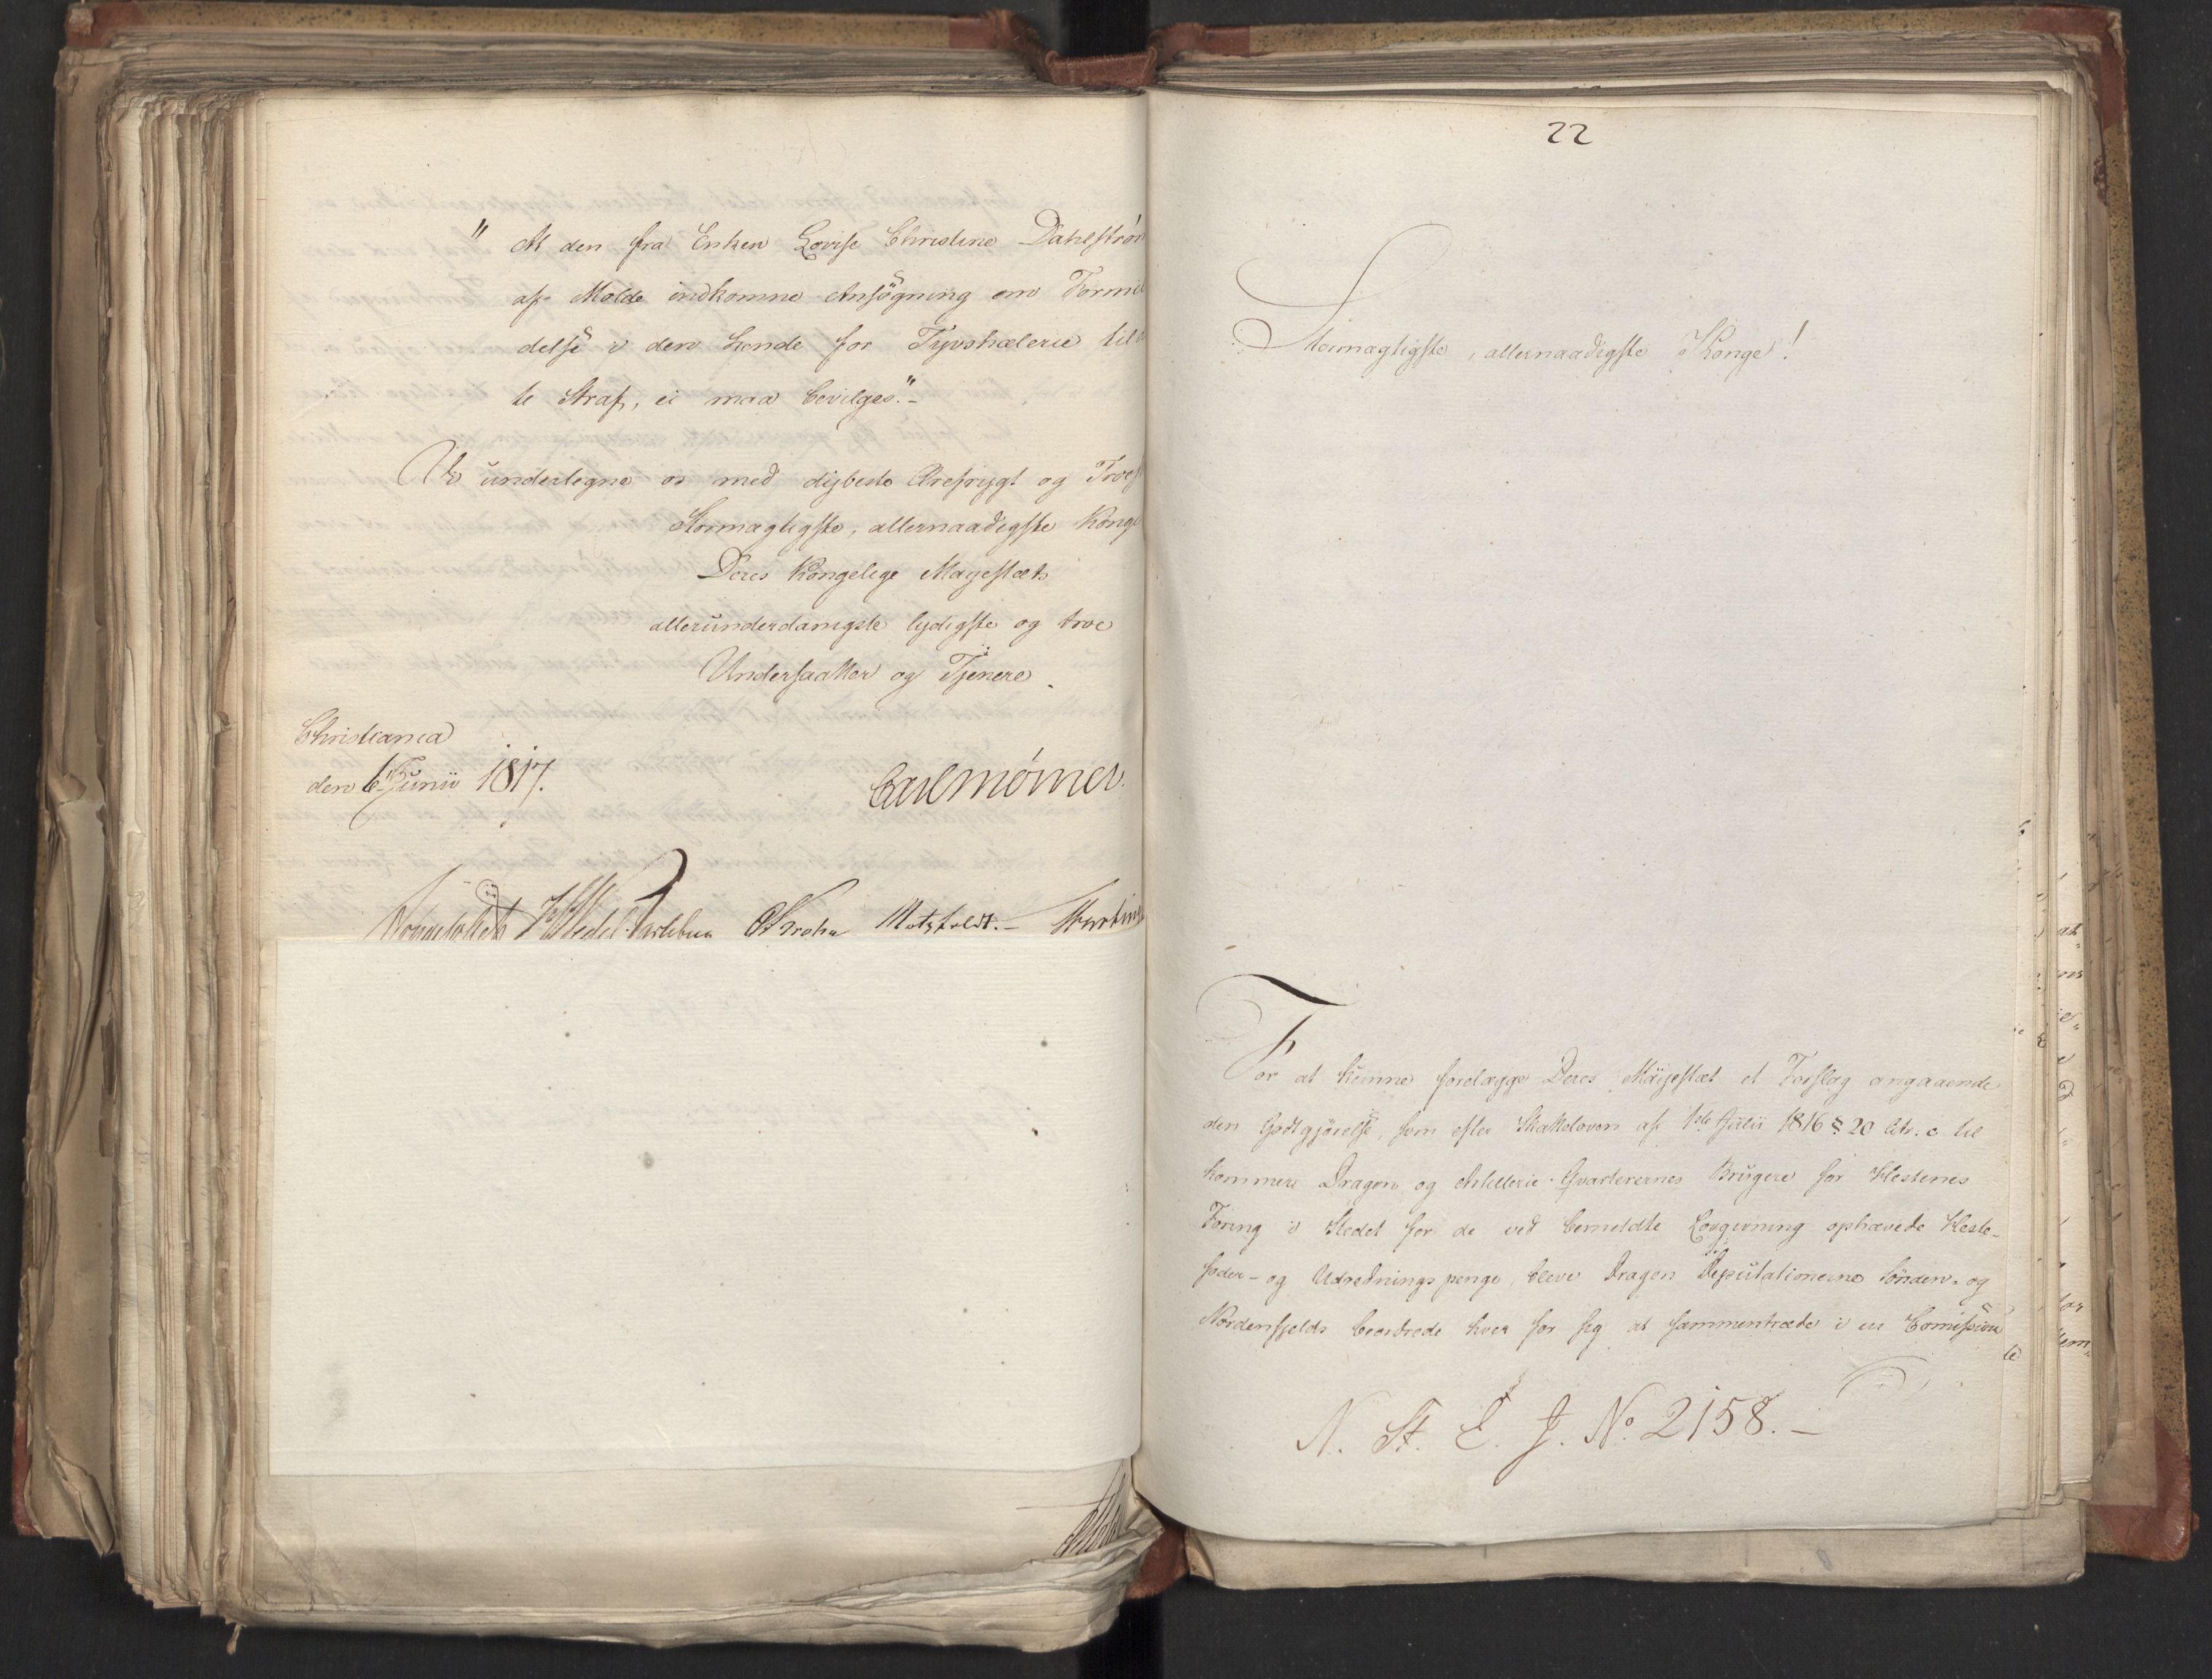 " At den fra Enken Lovise Christine Dahlstrøm
af Molde indkomne Ansøgning om Formil
delse i den hende for Tyvshælerie til
te Straf, ei maa bevilges."-
Vi undertegne os med dybeste Ærefrygt og Troes
Stormægtigste, allernaadigste Konge
Deres Kongelige Majestæts
allerunderdanigste lydigste og troe
Undersaatter og Tjenere.
Christiania
den 6te Junii 1817.
Carl Mörner.
Sommerfeldt Wedel-Jarlsberg Krohn Motzfeldt.-
22
Stormægtigste, allernaadigste Konge!
For at kunne forelægge Deres Majestæt et Forslag angaaende
den Godtgjørelse, som efter Skatteloven af 1ste Julii 1816 § 20 litr. c til
kommer Dragon og Artillerie-Qvarterernes Brugere for Hestenes
Foring i Stedet for de ved bemeldte Lovgivning ophævede Heste-
foder- og Udredningspenge, bleve Dragon Deputationerne Sønden- og
Nordenfjelds beordrede hver for sig at sammentræde i en Comission
N. St. E. J. No 2158.-